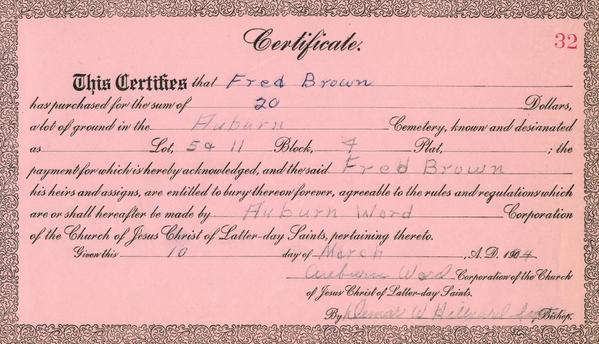 Certificate.
32
This Certifies that Fred Brown
has purchased for the sum of 20 Dollars,
a lot of ground in the Auburn Cemetery, known and designated
as Lot, 5 & 11 Block, 7 Plat, ; the
payment for which is hereby acknowledged, and the said Fred Brown
his heirs and assigns, are entitled to bury thereon forever, agreeable to the rules and regulations which
are or shall hereafter be made by Auburn Ward Corporation
of the Church of Jesus Christ of Latter-day Saints, pertaining thereto.
Given this 10 day of March, A.D. 19
Auburn Ward Corporation of the Church
of Jesus Christ of Latter-day Saints.
By W Bishop.